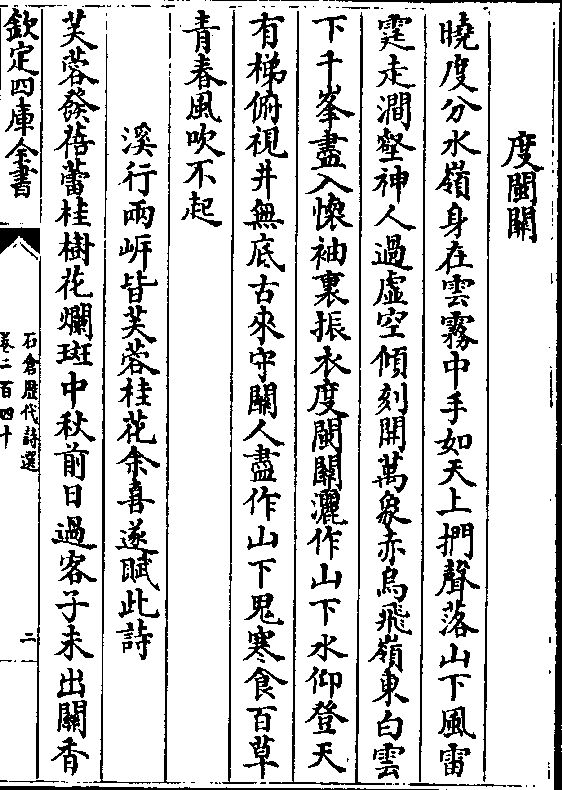 度閩關
曉度分水嶺身在雲霧中手如天上捫聲落山下風雷
霆走澗壑神人過虛空傾刻開萬象赤烏飛嶺東白雲
下千峯盡入懷袖裏振衣度閩關灑作山下水仰登天
有梯俯視井無底古來守關人盡作山下鬼寒食百草
青春風吹不起
溪行兩岍皆芙蓉桂花余喜遂賦此詩
芙蓉發蓓蕾桂樹花爛斑中秋前日過客子未出關香
欽定四庫全書
石倉歷代詩選
卷二百四十
二